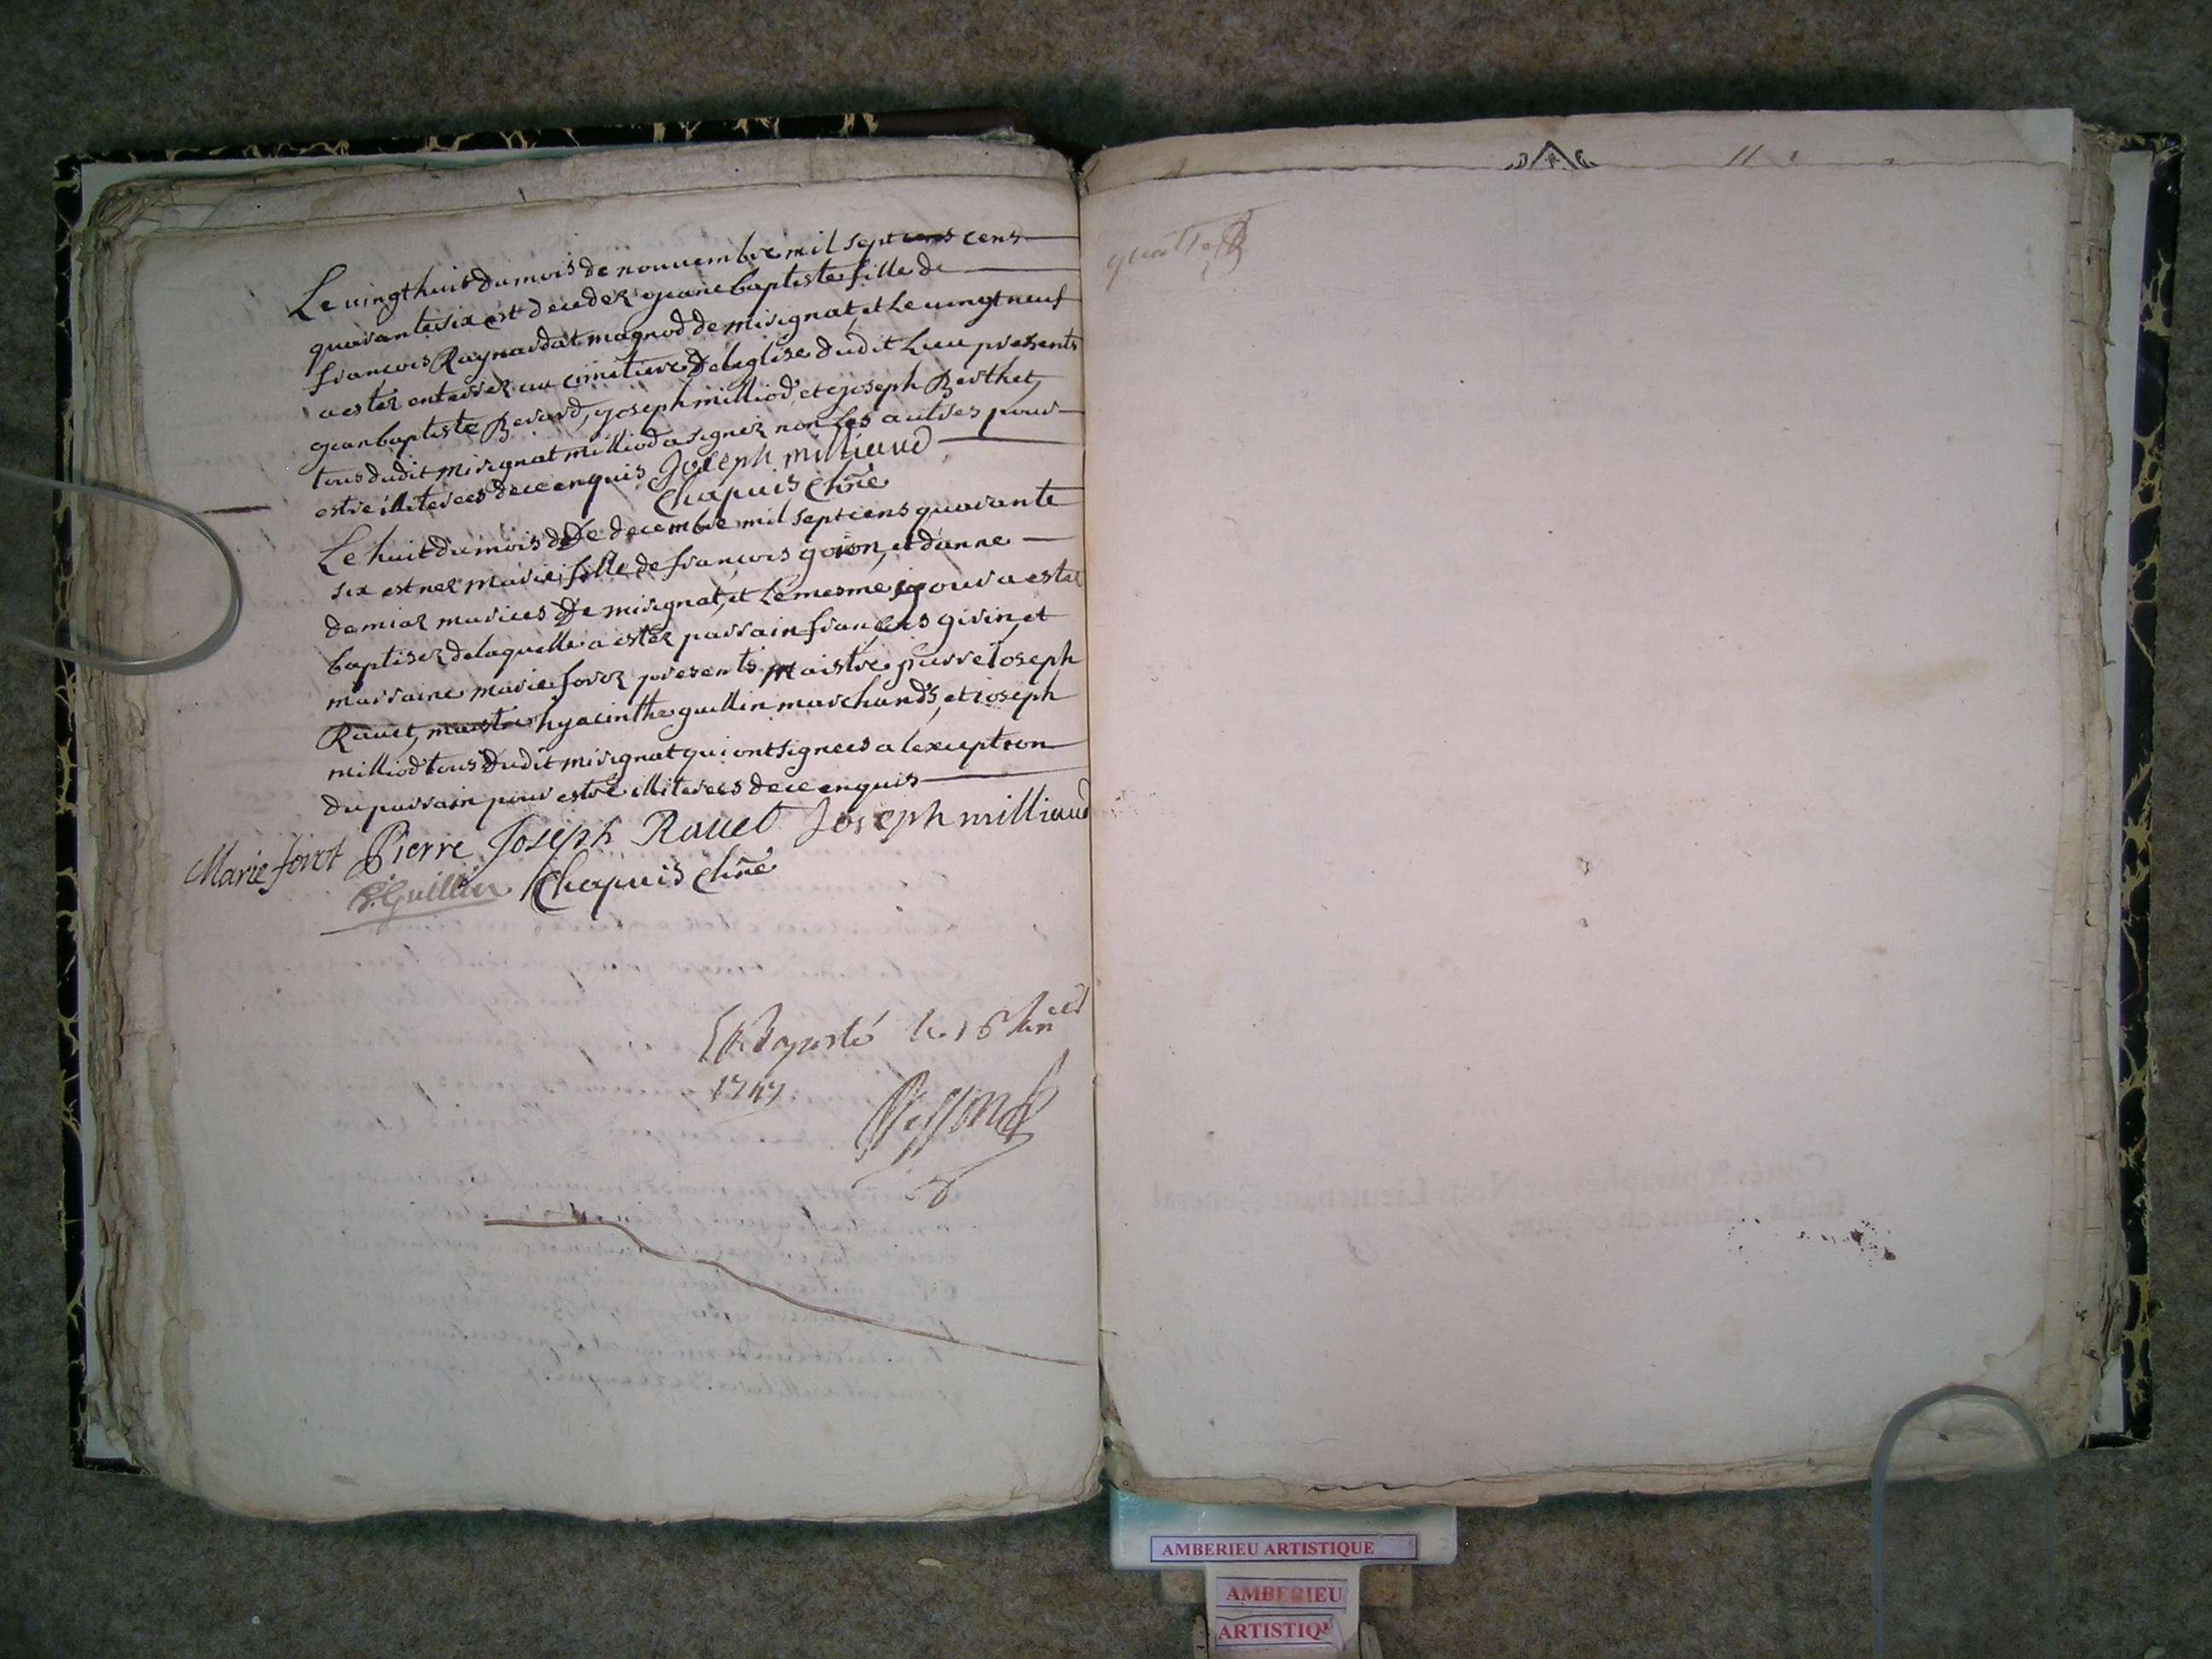 Le uingt huit du mois de nouuembre mil sept cens cens
quarante six est deceder jeane baptiste fille de
francois Raynardat magnod de mirignat, et Le uingt neuf
a ester enterrer au cimetiere de leglise dudit Lieu presents
jean baptiste Berard, joseph milliod et joseph Berthet,
tous dudit mirignat milliod a signer non Les autres pour
estre illiterees de ce enquis Joseph milliaud
Chapuis
Le huit du mois de De decembre mil sept cens quarante
six est ner marie fille de francois goion, et danne
damiar maries De mirignat, et Le mesme jour a ester
baptiser de laquelle a ester parrain francois girin, et
marraine marie forer presents maistre pierre Joseph
Rauet, maistre hyacinthe guillin marchands, et joseph
milliod tous Dudit mirignat qui ont signees a lexception
du parrain pour estre illiterees de ce enquis
Marie foret Pierre Joseph Rauet Joseph milliaud
Guillin Chapuis
le 16
1747
quatre
Lieutenant General
AMBERIEU ARTISTIQUE
AMBERIEU
ARTISTIQ